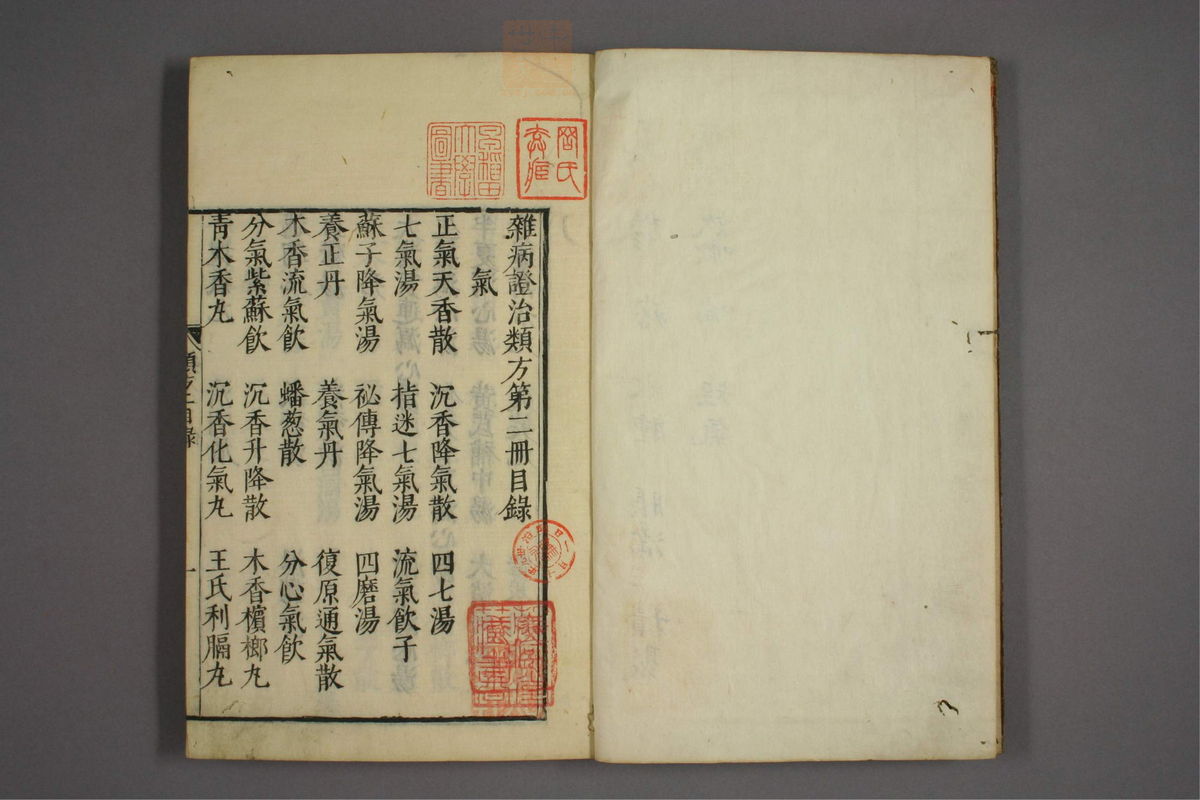 雜病證治類方第二冊目錄
氣
正氣天香散 沉香降氣散 四七湯
七氣湯 指迷七氣湯 流氣飲子
蘇子降氣湯 祕傳降氣湯 四磨湯
養正丹 養氣丹 復原通氣散
木香流氣飲 蟠葱散 分心氣飲
分氣紫蘇飲 沉香升降散 木香檳榔丸
青木香丸 沉香化氣丸 王氏利膈丸
類方二目錄 一
早稻田大學圖書